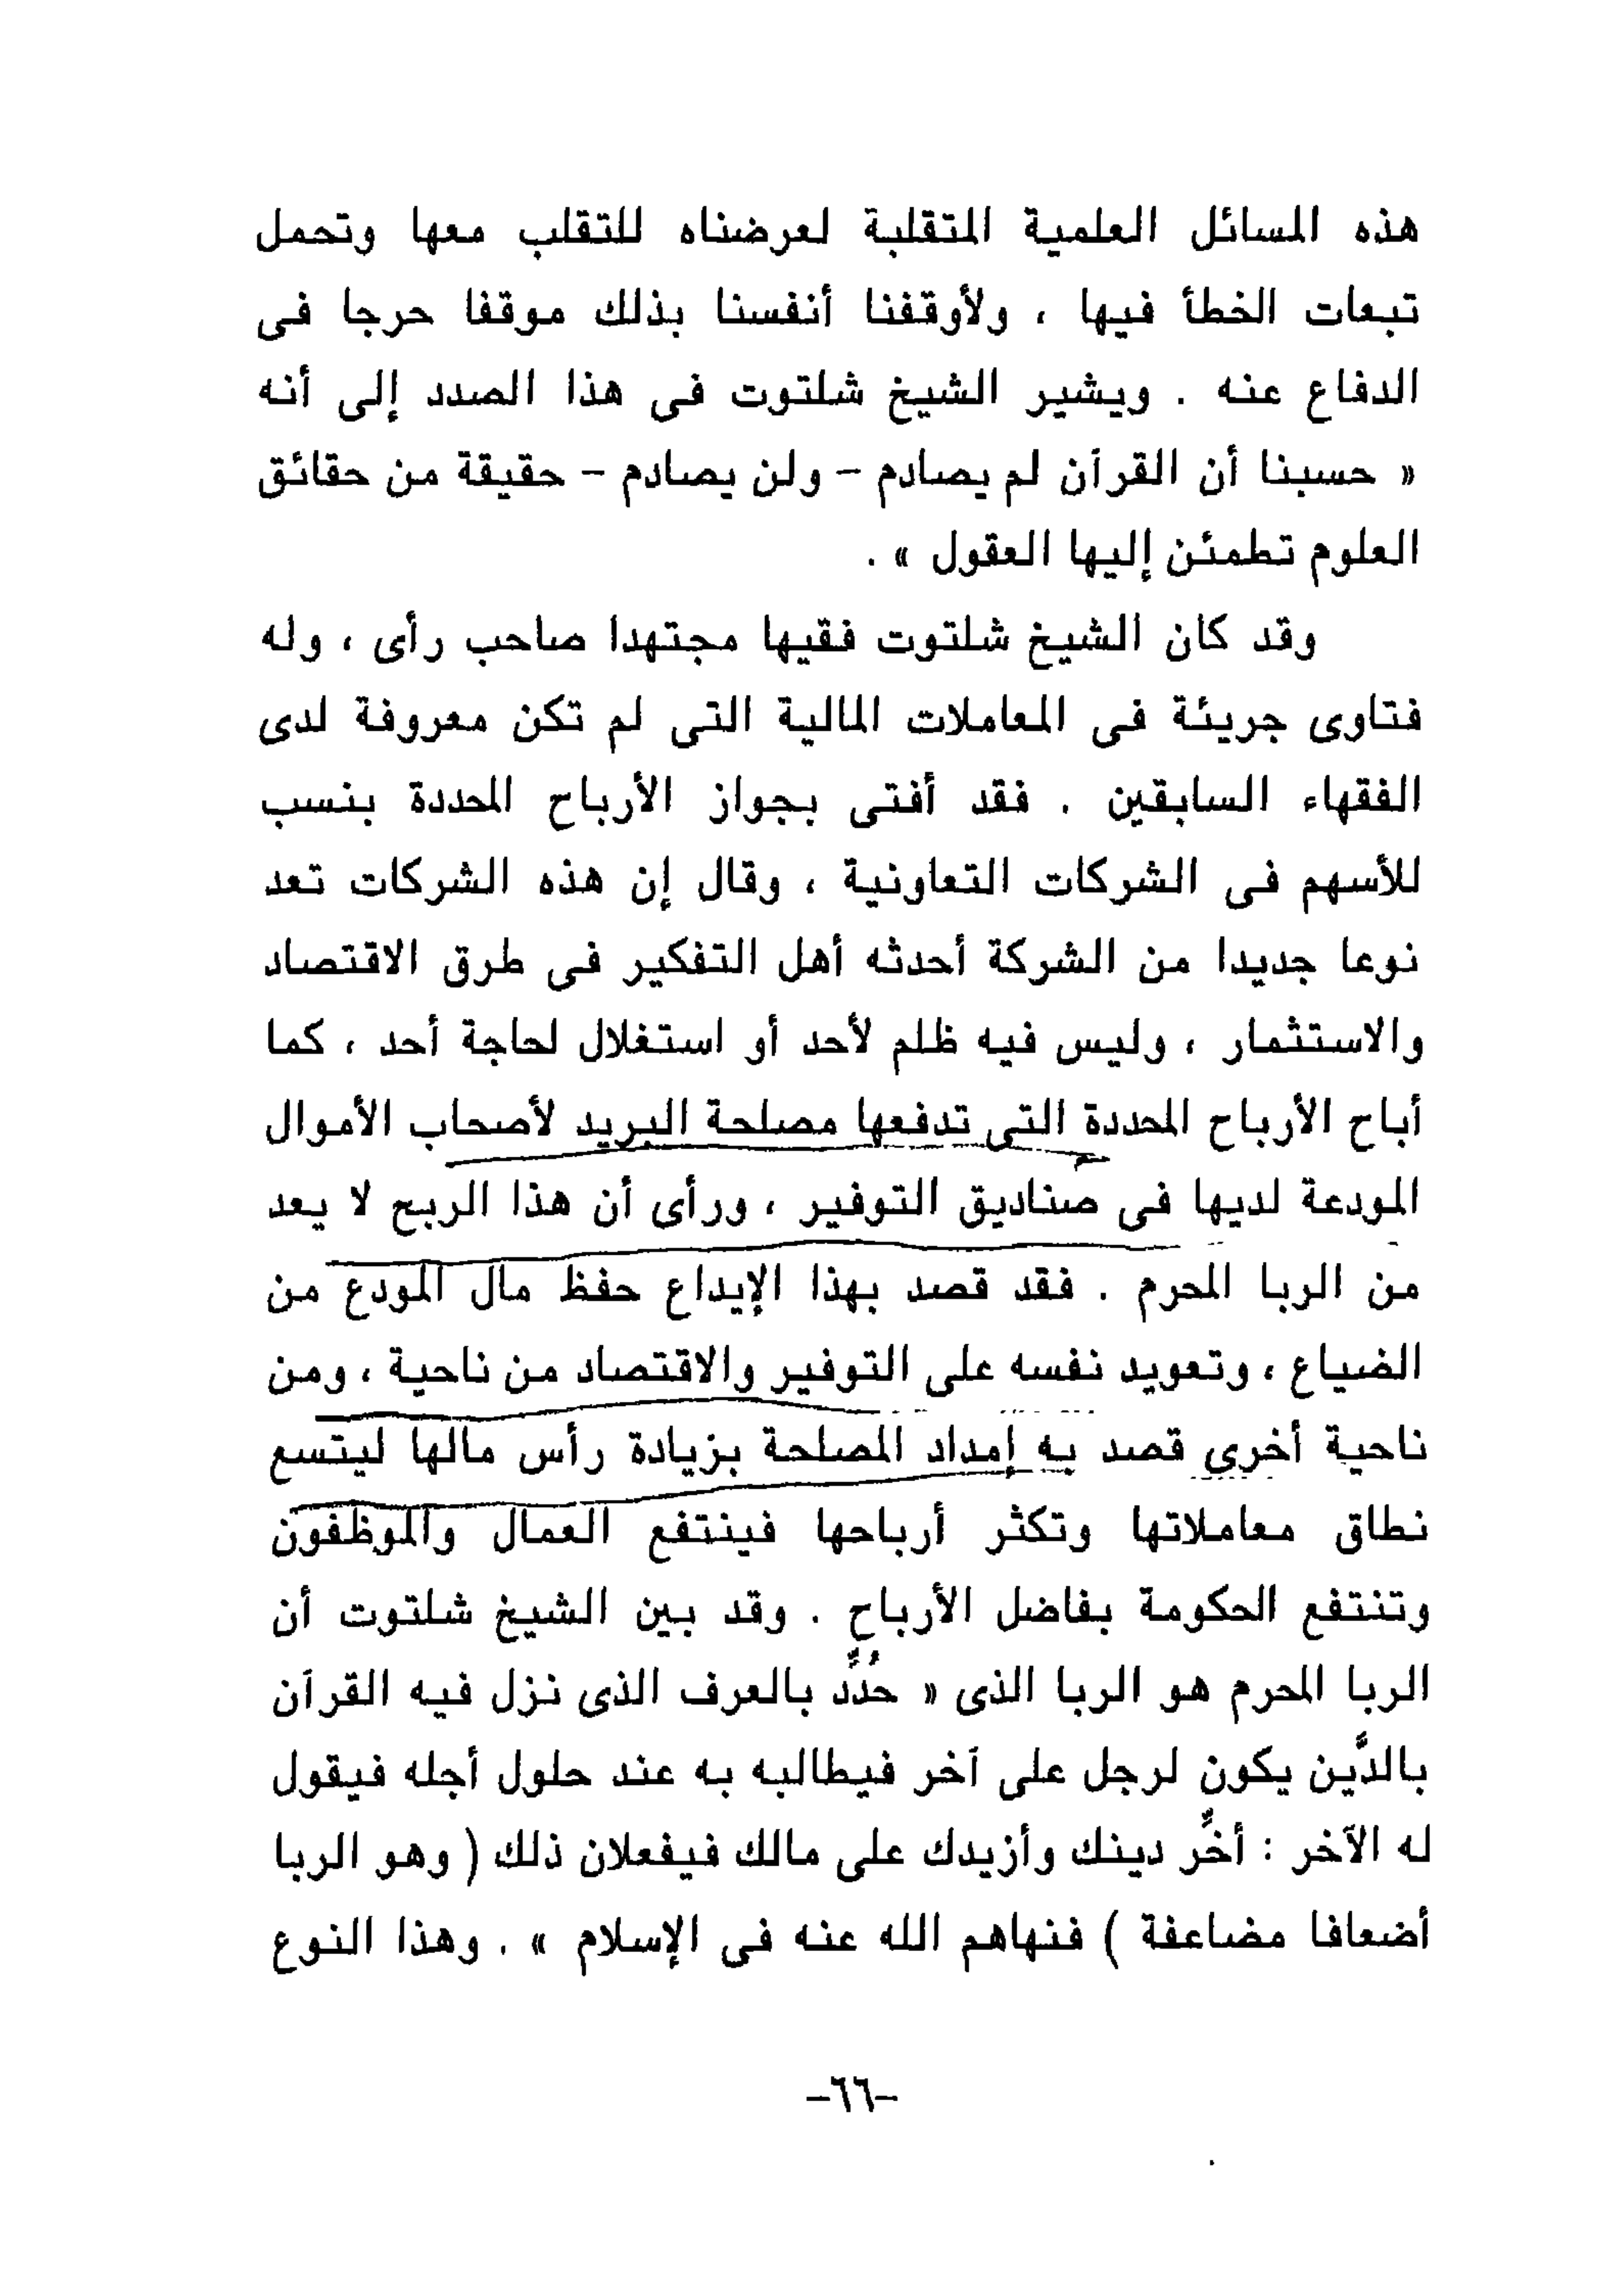 هذه المسائل العلمية المتقلبة لعرضناه للتقلب معها وتحمل
تبعات الخطأ فيها ، ولأوقفنا أنفسنا بذلك موقفا حرجا فى
الدفاع عنه . ويشير الشيخ شلتوت فى هذا الصدد إلى أنه
« حسبنا أن القرآن لم يصادم – ولن يصادم – حقيقة من حقائق
العلوم تطمئن إليها العقول » .
وقد كان الشيخ شلتوت فقيها مجتهدا صاحب رأى ، وله
فتاوى جريئة فى المعاملات المالية التى لم تكن معروفة لدى
الفقهاء السابقين . فقد أفتى بجواز الأرباح المحددة بنسب
للأسهم فى الشركات التعاونية ، وقال إن هذه الشركات تعد
نوعا جديدا من الشركة أحدثه أهل التفكير فى طرق الاقتصاد
والاستثمار ، وليس فيه ظلم لأحد أو استغلال لحاجة أحد ، كما
أباح الأرباح المحددة التى تدفعها مصلحة البريد لأصحاب الأموال
المودعة لديها فى صناديق التوفير ، ورأى أن هذا الربح لا يعد
من الربا المحرم . فقد قصد بهذا الإيداع حفظ مال المودع من
الضياع ، وتعويد نفسه على التوفير والاقتصاد من ناحية ، ومن
ناحية أخرى قصد به إمداد المصلحة بزيادة رأس مالها ليتسع
نطاق معاملاتها وتكثر أرباحها فينتفع العمال والموظفون
وتنتفع الحكومة بفاضل الأرباح . وقد بين الشيخ شلتوت أن
الربا المحرم هو الربا الذى « حُدِّد بالعرف الذى نزل فيه القرآن
بالدَّين يكون لرجل على آخر فيطالبه به عند حلول أجله فيقول
له الآخر : أخِّر دينك وأزيدك على مالك فيفعلان ذلك ( وهو الربا
أضعافا مضاعفة ) فنهاهم الله عنه فى الإسلام » . وهذا النوع
–٦٦–